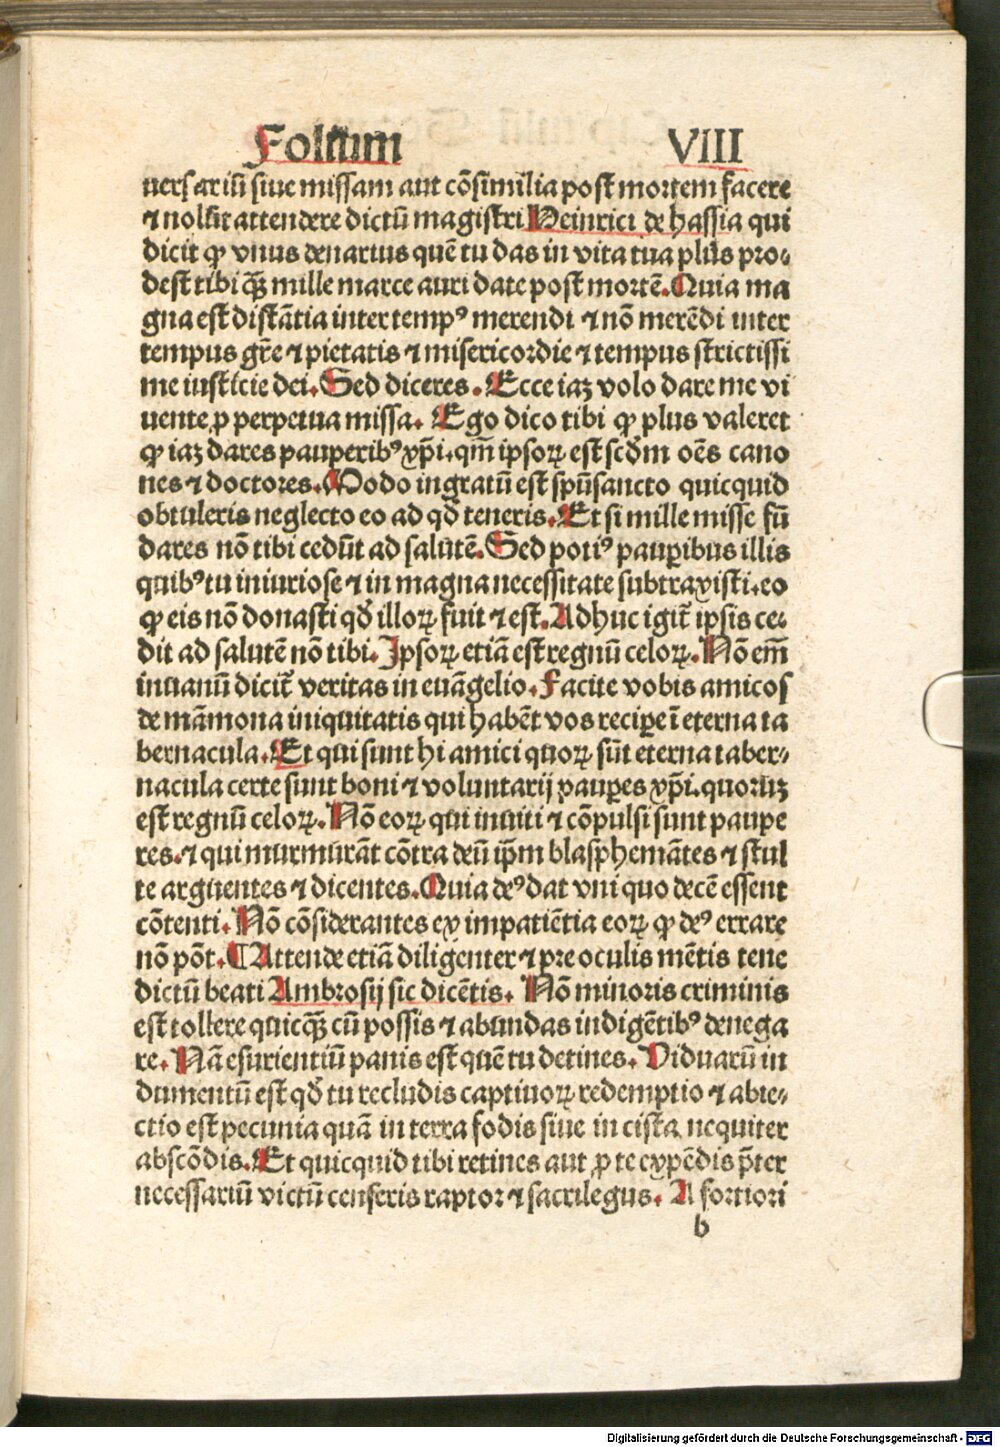 Folium VIII
uersariū siue missam aut cōsimilia post mortem facere
⁊ nolūt attendere dictū magistri Heinrici de hassia qui
dicit ꝙ vnus denarius quē tu das in vita tua plus pro⸗
dest tibi q̄ꝫ mille marce auri date post mortē. Quia ma
gna est distātia inter tempꝰ merendi ⁊ nō merēdi inter
tempus gr̄e ⁊ pietatis ⁊ misericordie ⁊ tempus strictissi
me iusticie dei. Sed diceres. Ecce iaꝫ volo dare me vi
uente ꝓ perpetua missa. Ego dico tibi ꝙ plus valeret
ꝙ iaꝫ dares pauperibꝰ xp̄i. qm̄ ipsoꝝ est scd̄m oēs cano
nes ⁊ doctores. Modo ingratū est spūsancto quicquid
obtuleris neglecto eo ad qd̄ teneris. Et si mille misse fū
dares nō tibi cedūt ad salutē. Sed potiꝰ pauꝑibus illis
quibꝰ tu iniuriose ⁊ in magna necessitate subtraxisti. eo
ꝙ eis nō donasti qd̄ illoꝝ fuit ⁊ est. Adhuc igit̄ ipsis ce⸗
dit ad salutē nō tibi. Ipsoꝝ etiā est regnū celoꝝ. Nō em̄
inuanū dicit̄ veritas in euāgelio. Facite vobis amicos
de māmona iniquitatis qui habēt vos reciꝑe ī eterna ta
bernacula. Et qui sunt hi amici quoꝝ sūt eterna taber⸗
nacula certe sunt boni ⁊ voluntarij pauꝑes xp̄i. quoruꝫ
est regnū celoꝝ. Nō eoꝝ qui inuiti ⁊ cōpulsi sunt paupe
res. ⁊ qui murmurāt cōtra deū ip̄m blasphemātes ⁊ stul
te arguentes ⁊ dicentes. Quia deꝰ dat vni quo decē essent
cōtenti. Nō cōsiderantes ex impatiētia eoꝝ ꝙ deꝰ errare
nō pōt. ¶ Attende etiā diligenter ⁊ pre oculis mētis tene
dictū beati Ambrosij sic dicētis. Nō minoris criminis
est tollere quicq̄ꝫ cū possis ⁊ abundas indigētibꝰ denega
re. Nā esurientiū panis est quē tu detines. Viduarū in
dumentū est qd̄ tu recludis captiuoꝝ redemptio ⁊ abie⸗
ctio est pecunia quā in terra fodis siue in cista nequiter
abscōdis. Et quicquid tibi retines aut ꝓ te expēdis p̄ter
necessariū victū censeris raptor ⁊ sacrilegus. A fortiori
b
Digitalisierung gefördert durch die Deutsche Forschungsgemeinschaft - DFG